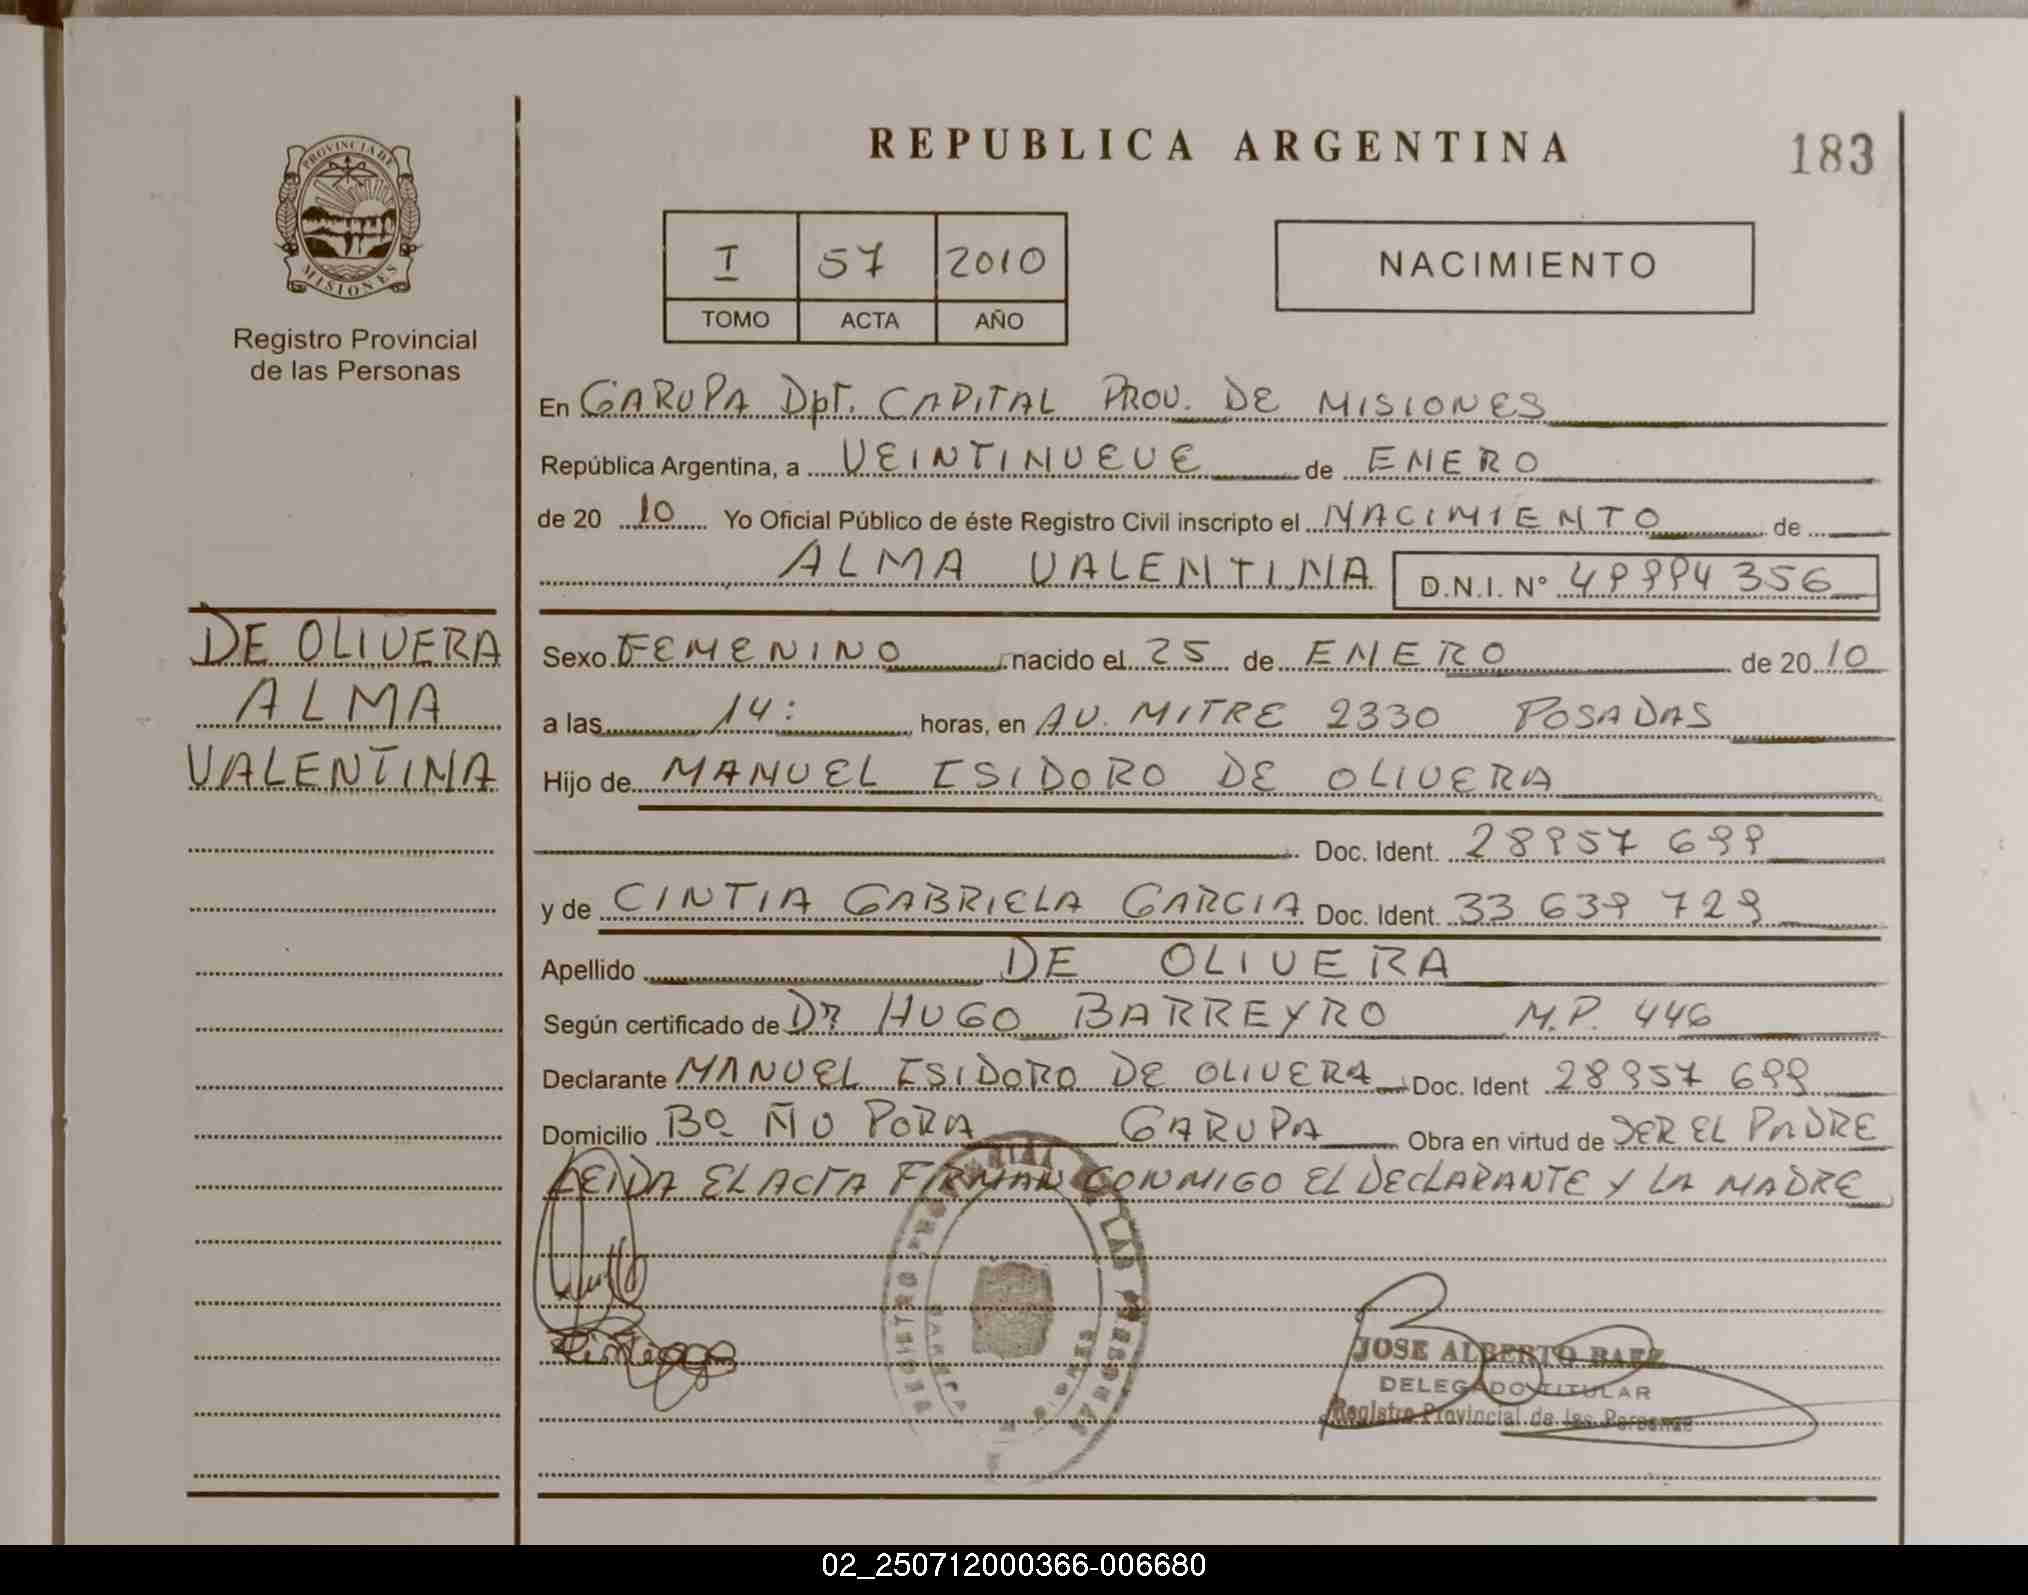 REPUBLICA ARGENTINA
183
PROVINCIA DE
MISIONES
Registro Provincial
de las Personas
I 57 2010
TOMO ACTA AÑO
NACIMIENTO
En GARUPA Dpt. CAPITAL PROV. DE MISIONES
República Argentina, a VEINTINUEVE de ENERO
de 20 10 Yo Oficial Público de éste Registro Civil inscripto el NACIMIENTO de
ALMA VALENTINA D.N.I. N° 49994356
DE OLIVERA
ALMA
VALENTINA
Sexo FEMENINO nacido el 25 de ENERO de 20 10
a las 14: horas, en AV. MITRE 2330 POSADAS
Hijo de MANUEL ISIDORO DE OLIVERA
Doc. Ident. 28957 699
y de CINTIA GABRIELA GARCIA Doc. Ident. 33 639 729
Apellido DE OLIVERA
Según certificado de Dr HUGO BARREYRO M.P. 446
Declarante MANUEL ISIDORO DE OLIVERA Doc. Ident 28957 699
Domicilio Bº ÑU PORA GARUPA Obra en virtud de SER EL PADRE
LEIDA EL ACTA FIRMAN CONMIGO EL DECLARANTE Y LA MADRE
JOSE ALBERTO BAEZ
DELEGADO TITULAR
Registro Provincial de las Personas
02_250712000366-006680